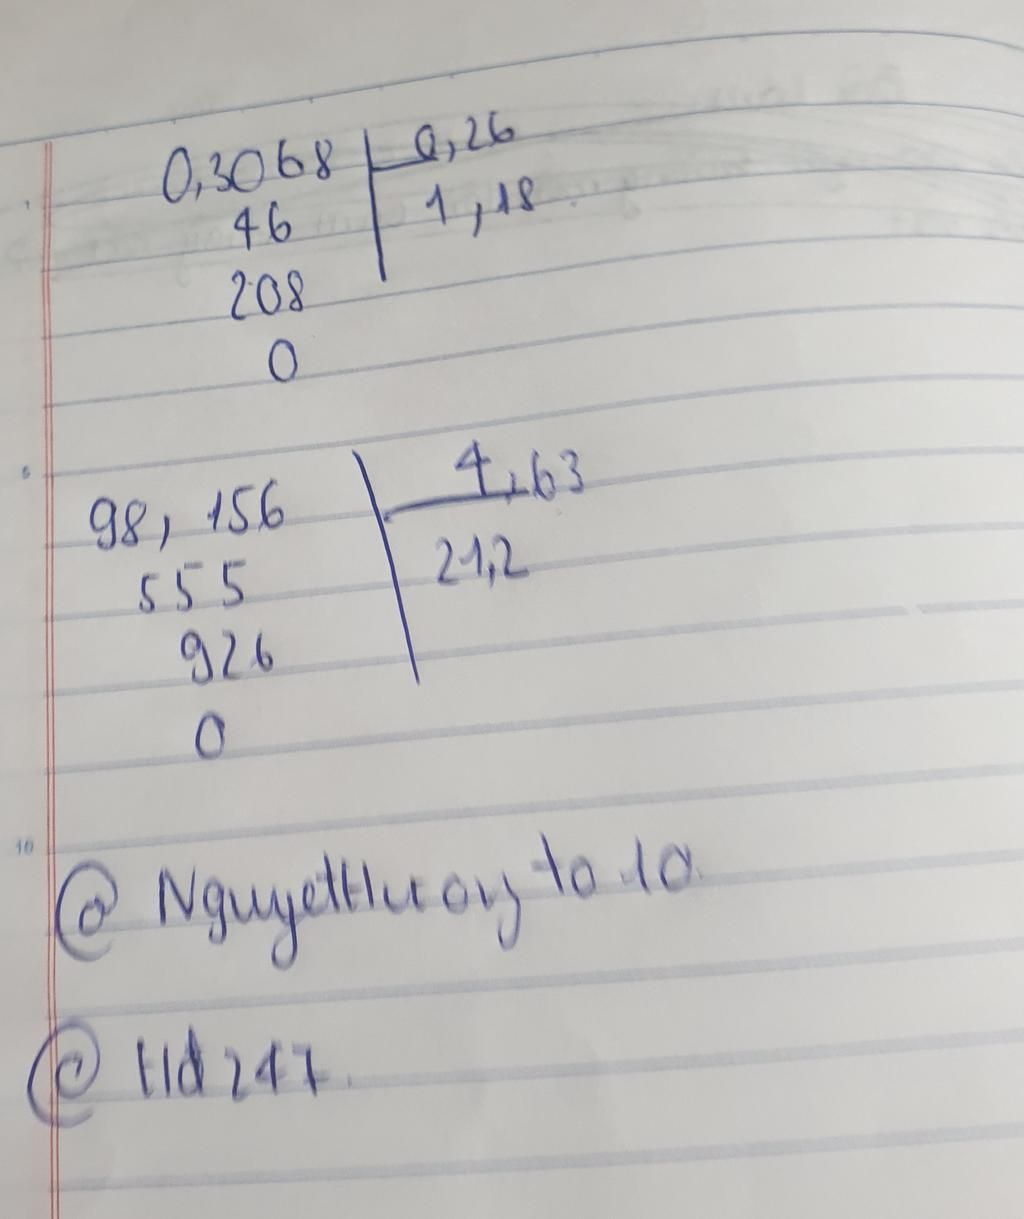 0,3068 0,26
46 1,18
208
0
98,156 4,63
555 21,2
926
0
@
@ Hd247.